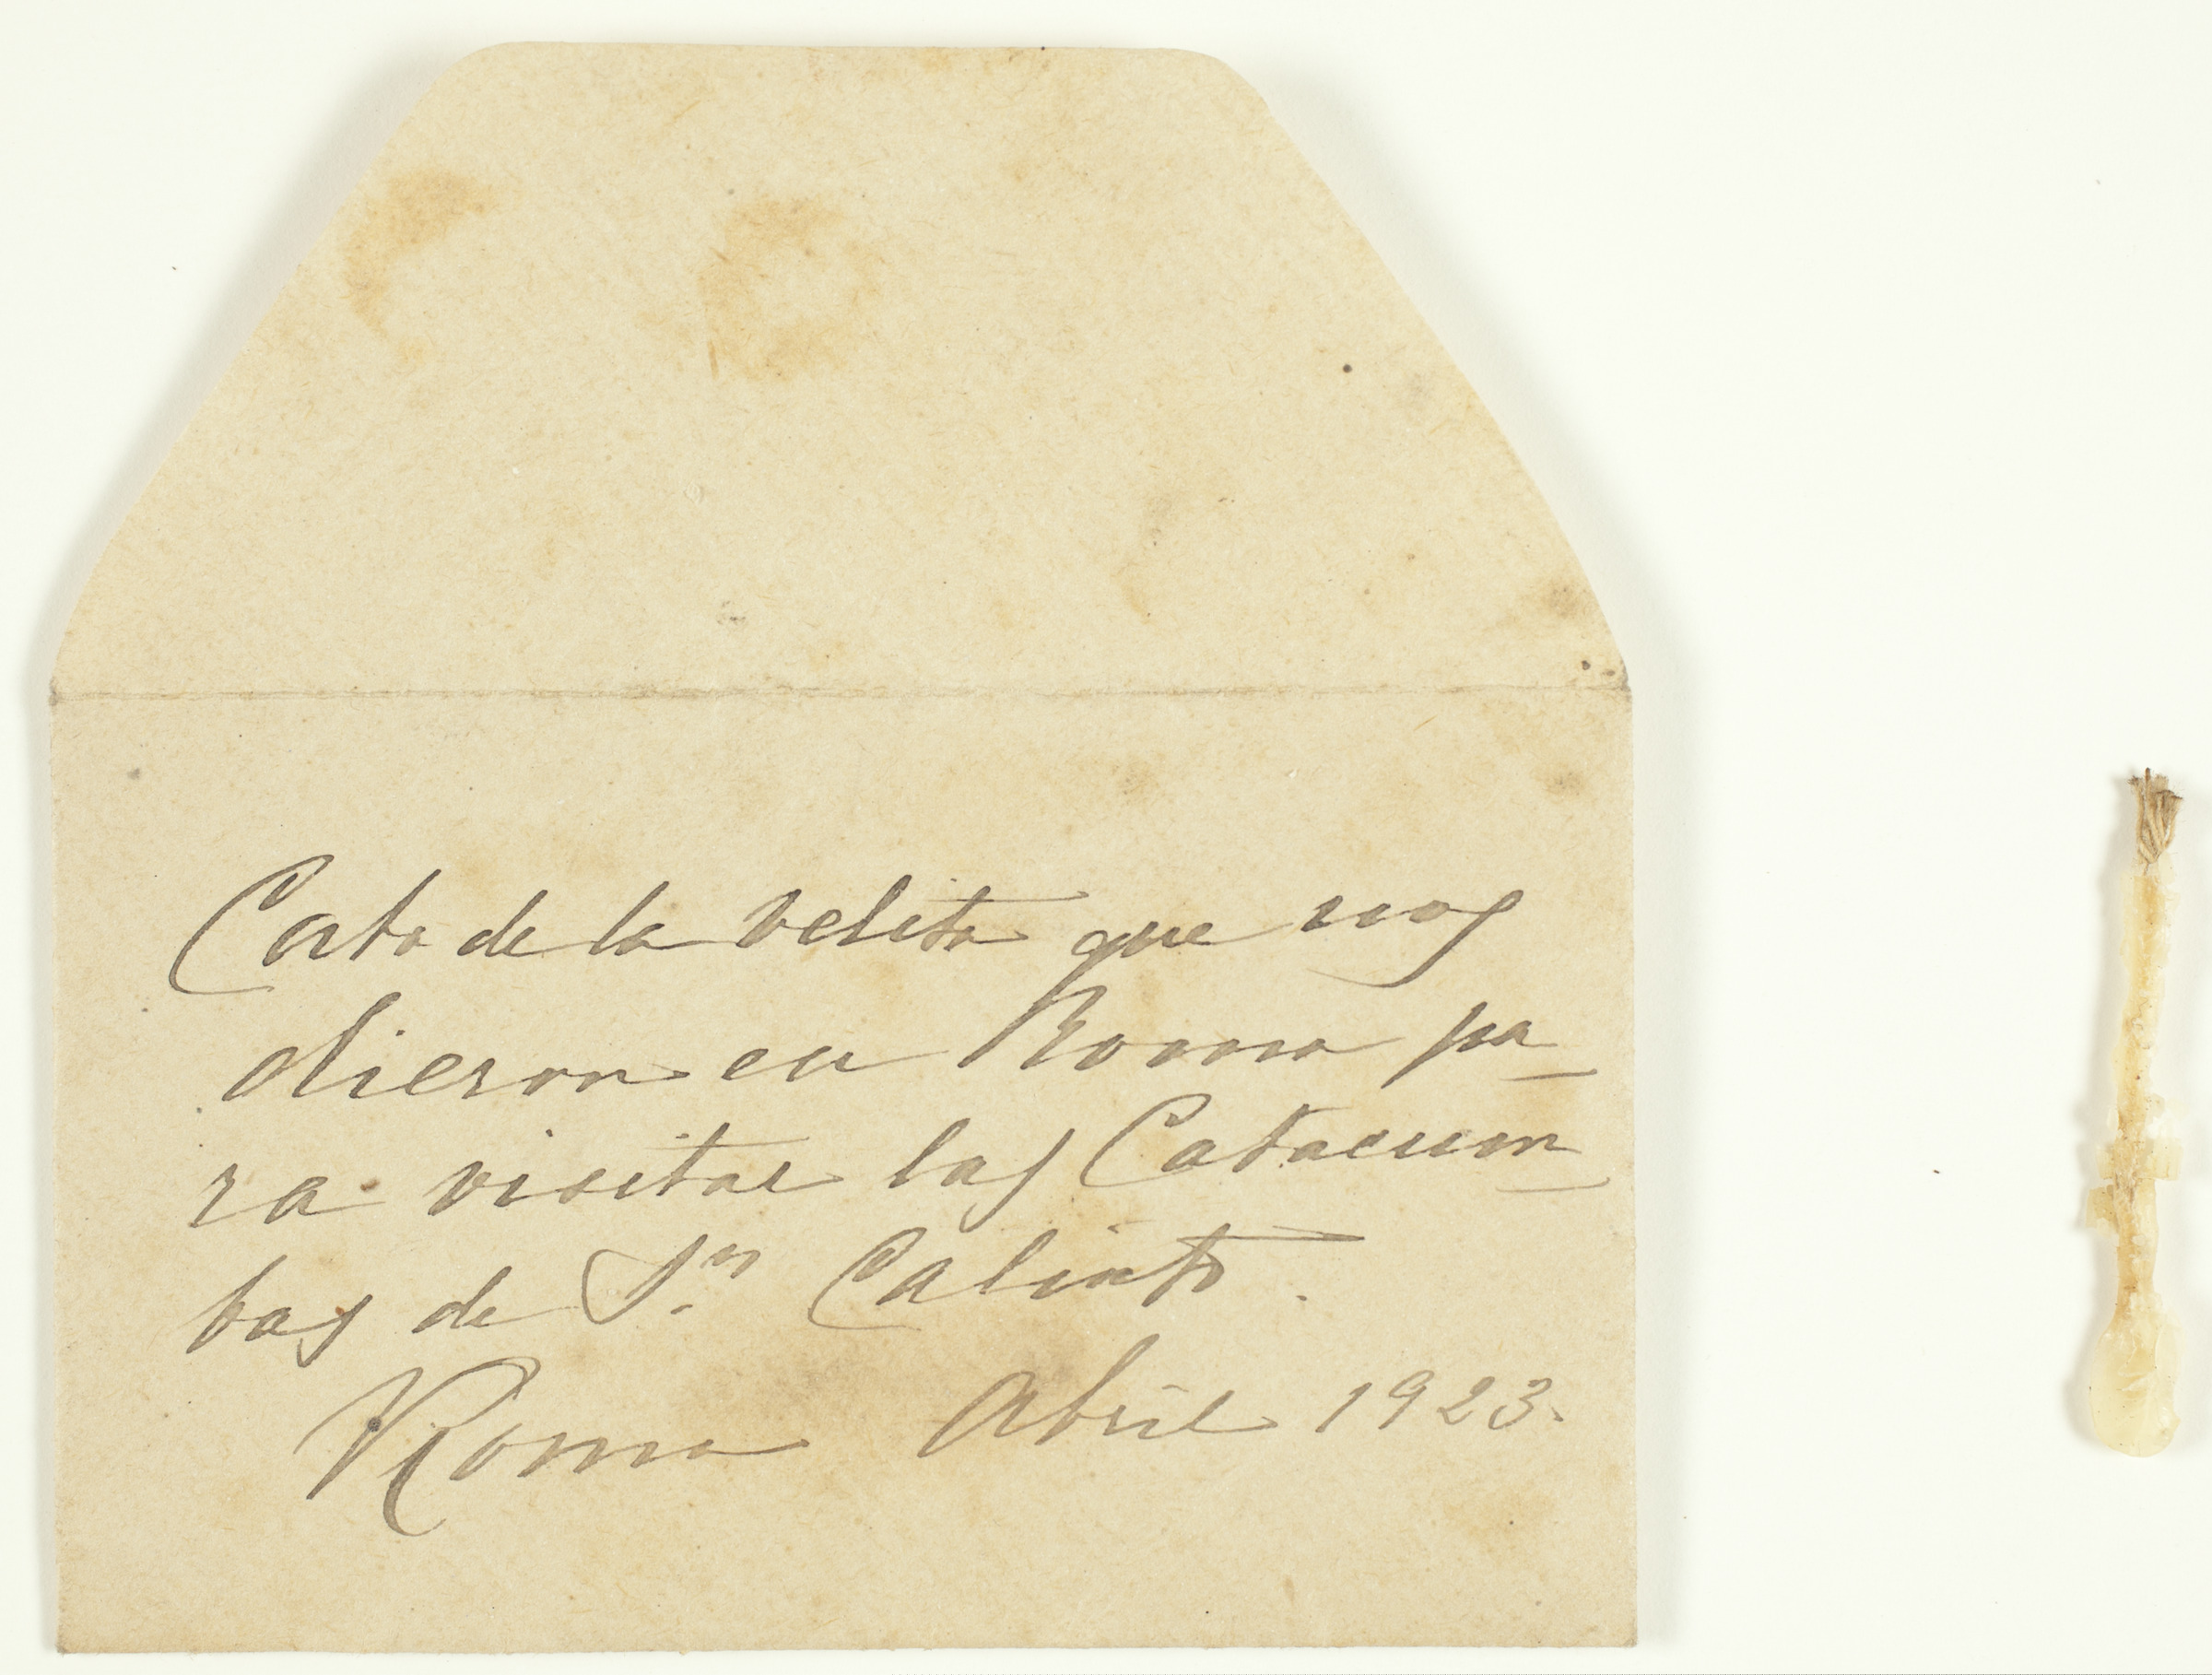 Cabo de la velita que nos
dieron en Roma pa_
ra visitar las Catacum_
bas de Sn. Calixto.
Roma Abril 1923.